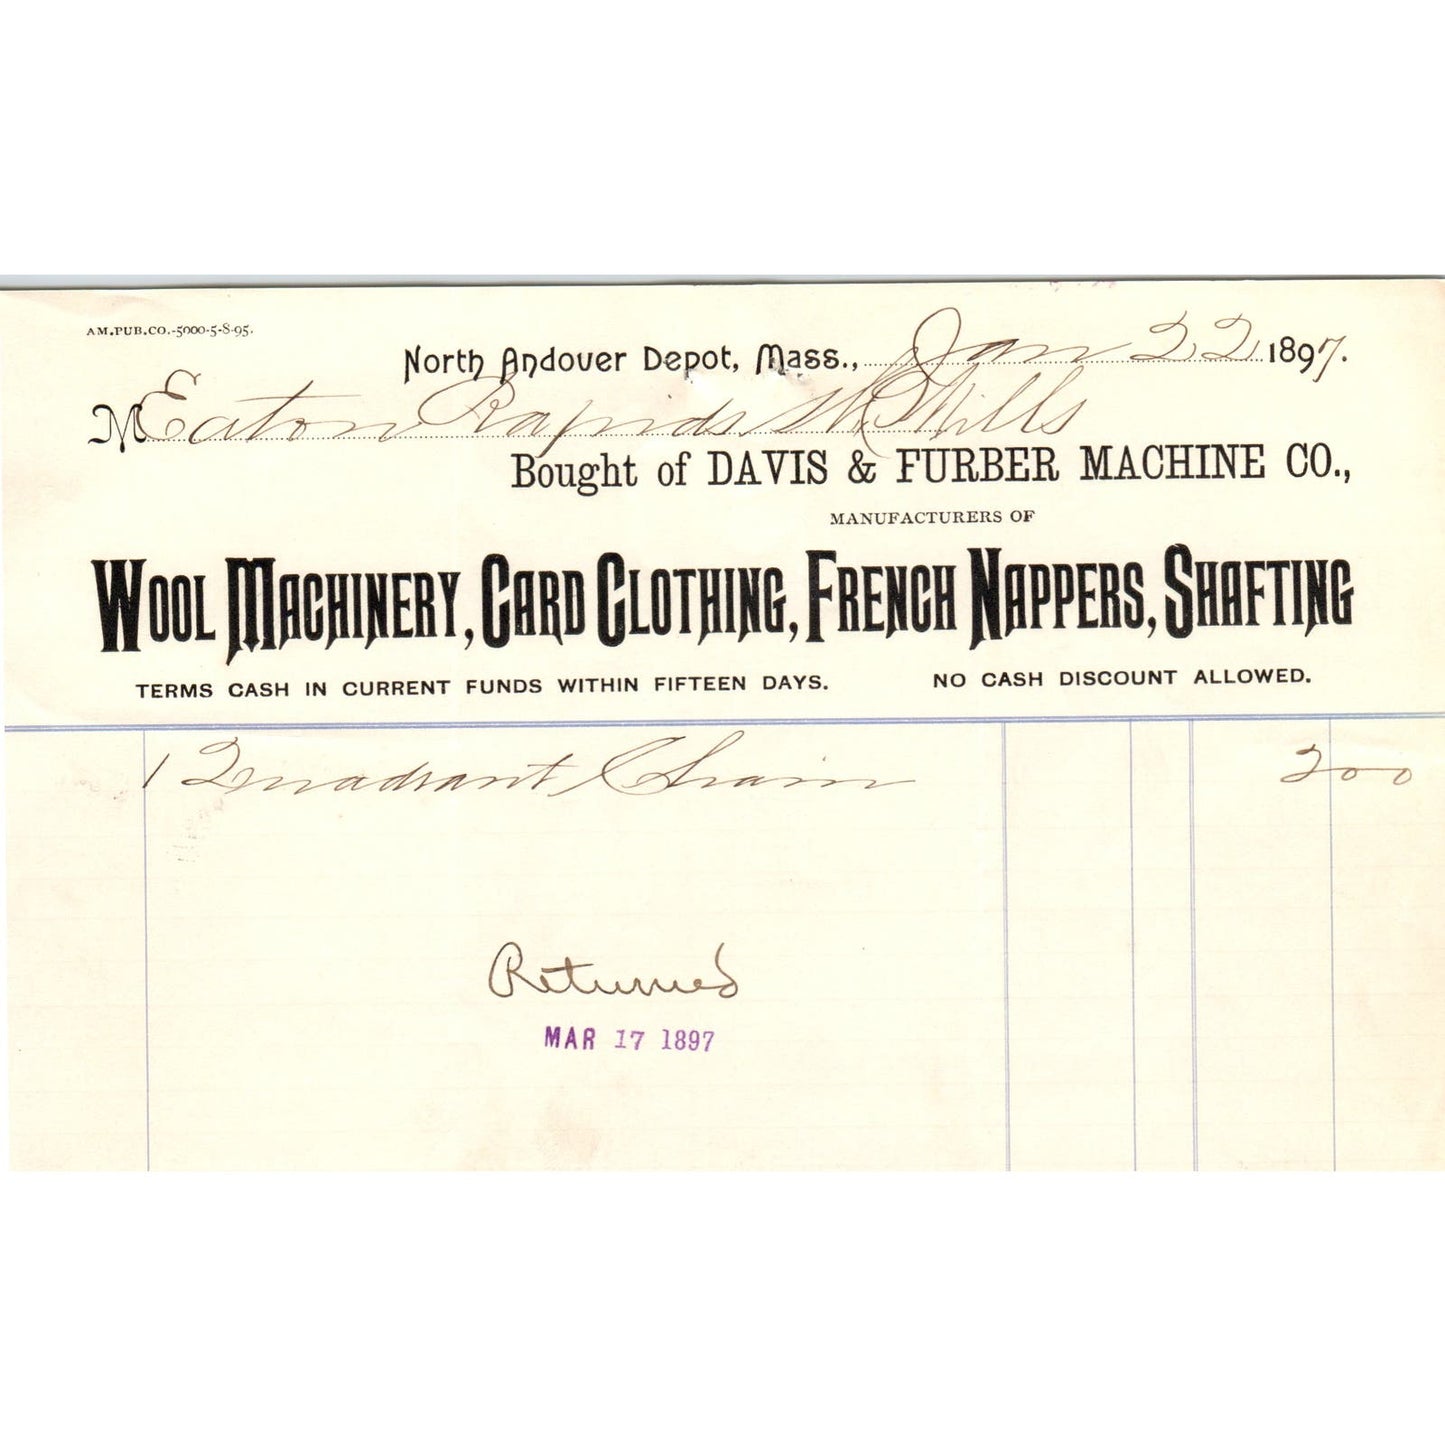 AM.PUB.CO.-5000-5-8-95.
North Andover Depot, Mass., Jan 22 1897.
M Eaton Rapids Mills
Bought of DAVIS & FURBER MACHINE CO.,
MANUFACTURERS OF
WOOL MACHINERY, CARD CLOTHING, FRENCH NAPPERS, SHAFTING
TERMS CASH IN CURRENT FUNDS WITHIN FIFTEEN DAYS. NO CASH DISCOUNT ALLOWED.
1 Quadrant Chain 2 00
Returned
MAR 17 1897